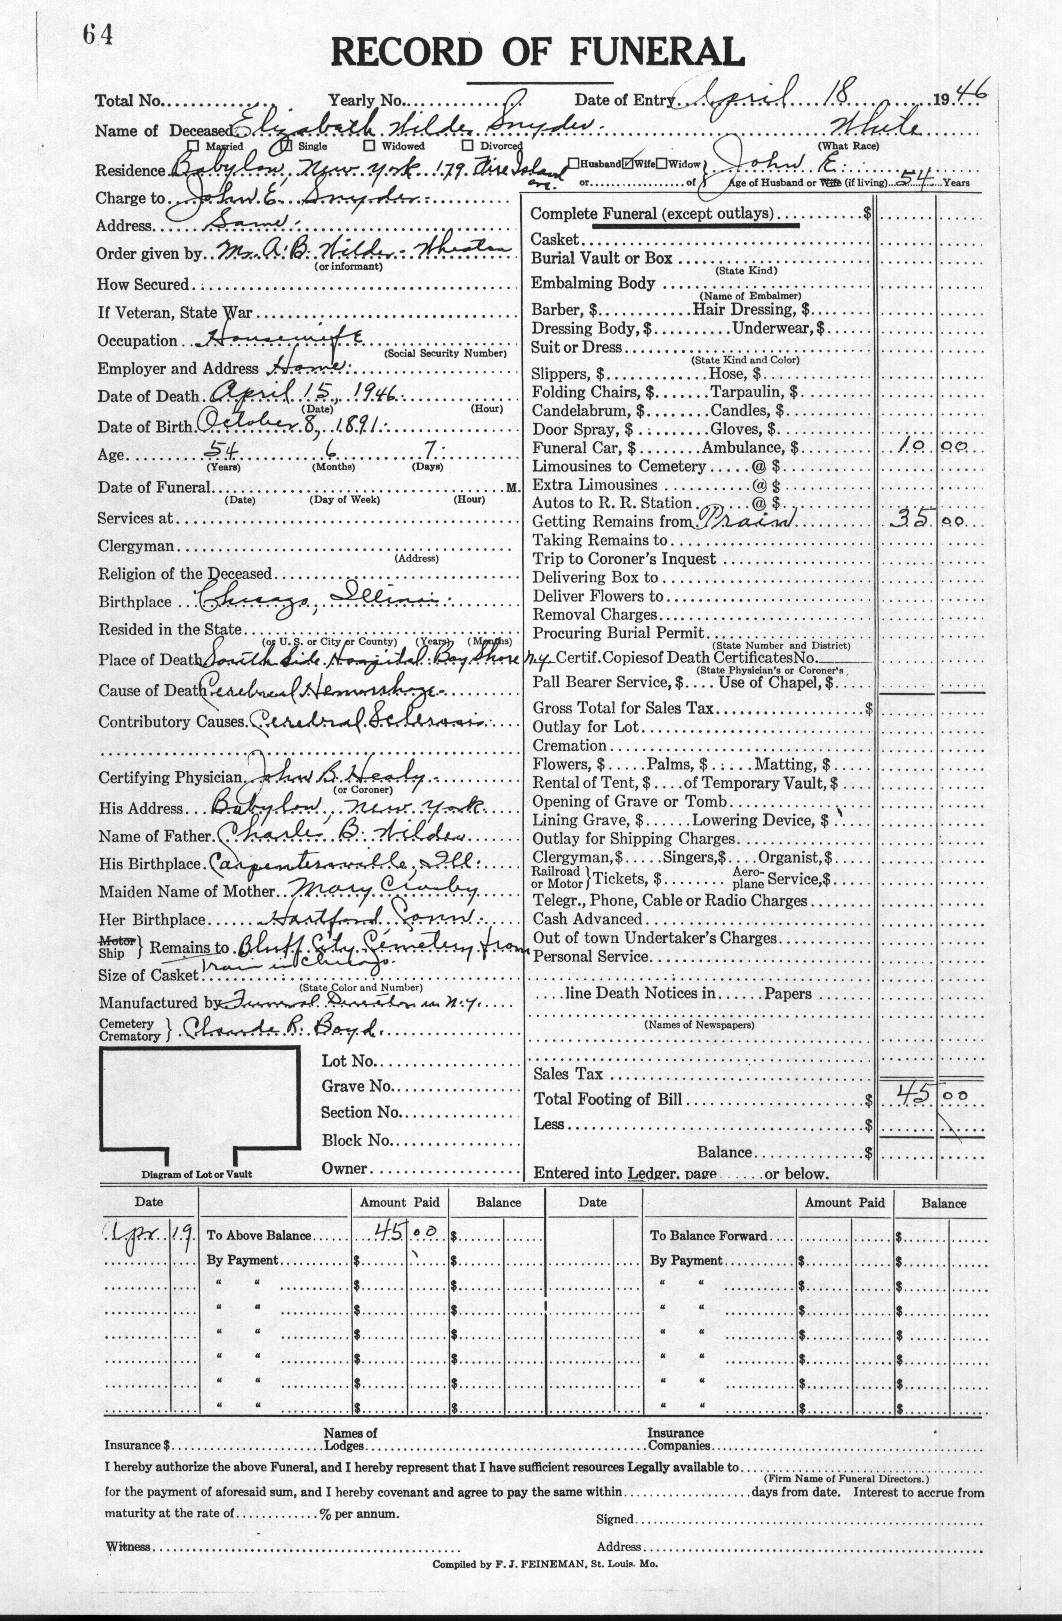 64
RECORD OF FUNERAL
Total No. Yearly No. Date of Entry April 18 1946
Name of Deceased Elizabeth Wilder Snyder White
Married Single Widowed Divorced (What Race)
Residence Babylon, New York 179 Fire Island Ave. Husband Wife Widow John E.
or of Age of Husband or Wife (if living) 54 Years
Charge to John E. Snyder
Address Same
Order given by Mr. A. B. Wilder - Wheaton
(or informant)
How Secured
If Veteran, State War
Occupation Housewife
(Social Security Number)
Employer and Address Home
Date of Death April 15, 1946
(Date) (Hour)
Date of Birth October 8, 1891
Age 54 6 7
(Years) (Months) (Days)
Date of Funeral M.
(Date) (Day of Week) (Hour)
Services at
Clergyman
(Address)
Religion of the Deceased
Birthplace Chicago, Illinois
Resided in the State
(or U. S. or City or County) (Years) (Months)
Place of Death South Side Hospital Bay Shore N.Y.
Cause of Death Cerebral Hemorrhage
Contributory Causes Cerebral Sclerosis
Certifying Physician John B. Healy
(or Coroner)
His Address Babylon, New York
Name of Father Charles B. Wilder
His Birthplace Carpentersville, Ill.
Maiden Name of Mother Mary Crosby
Her Birthplace Hartford, Conn.
Motor
Ship } Remains to Bluff City Cemetery from
train in Chicago
Size of Casket
(State Color and Number)
Manufactured by Funeral Director in N.Y.
Cemetery
Crematory } Claude R. Boyd
Lot No.
Grave No.
Section No.
Block No.
Owner
Diagram of Lot or Vault
Complete Funeral (except outlays) $
Casket
Burial Vault or Box
(State Kind)
Embalming Body
(Name of Embalmer)
Barber, $ Hair Dressing, $
Dressing Body, $ Underwear, $
Suit or Dress
(State Kind and Color)
Slippers, $ Hose, $
Folding Chairs, $ Tarpaulin, $
Candelabrum, $ Candles, $
Door Spray, $ Gloves, $
Funeral Car, $ Ambulance, $ 10 00
Limousines to Cemetery @ $
Extra Limousines @ $
Autos to R. R. Station @ $
Getting Remains from Train 35 00
Taking Remains to
Trip to Coroner's Inquest
Delivering Box to
Deliver Flowers to
Removal Charges
Procuring Burial Permit
(State Number and District)
Certif. Copies of Death Certificates No.
(State Physician's or Coroner's
Pall Bearer Service, $ Use of Chapel, $
Gross Total for Sales Tax $
Outlay for Lot
Cremation
Flowers, $ Palms, $ Matting, $
Rental of Tent, $ of Temporary Vault, $
Opening of Grave or Tomb
Lining Grave, $ Lowering Device, $
Outlay for Shipping Charges
Clergyman, $ Singers, $ Organist, $
Railroad or Motor } Tickets, $ Aeroplane Service, $
Telegr., Phone, Cable or Radio Charges
Cash Advanced
Out of town Undertaker's Charges
Personal Service
line Death Notices in Papers
(Names of Newspapers)
Sales Tax
Total Footing of Bill $ 45 00
Less $
Balance $
Entered into Ledger, page or below.
Date Amount Paid Balance Date Amount Paid Balance
Apr 19 To Above Balance 45 00 $ To Balance Forward $
By Payment $ $ By Payment $ $
" " $ $ " " $ $
" " $ $ " " $ $
" " $ $ " " $ $
" " $ $ " " $ $
" " $ $ " " $ $
" " $ $ " " $ $
Insurance $ Names of Lodges Insurance Companies
I hereby authorize the above Funeral, and I hereby represent that I have sufficient resources Legally available to
(Firm Name of Funeral Directors.)
for the payment of aforesaid sum, and I hereby covenant and agree to pay the same within days from date. Interest to accrue from
maturity at the rate of % per annum.
Signed
Witness Address
Compiled by F. J. FEINEMAN, St. Louis, Mo.